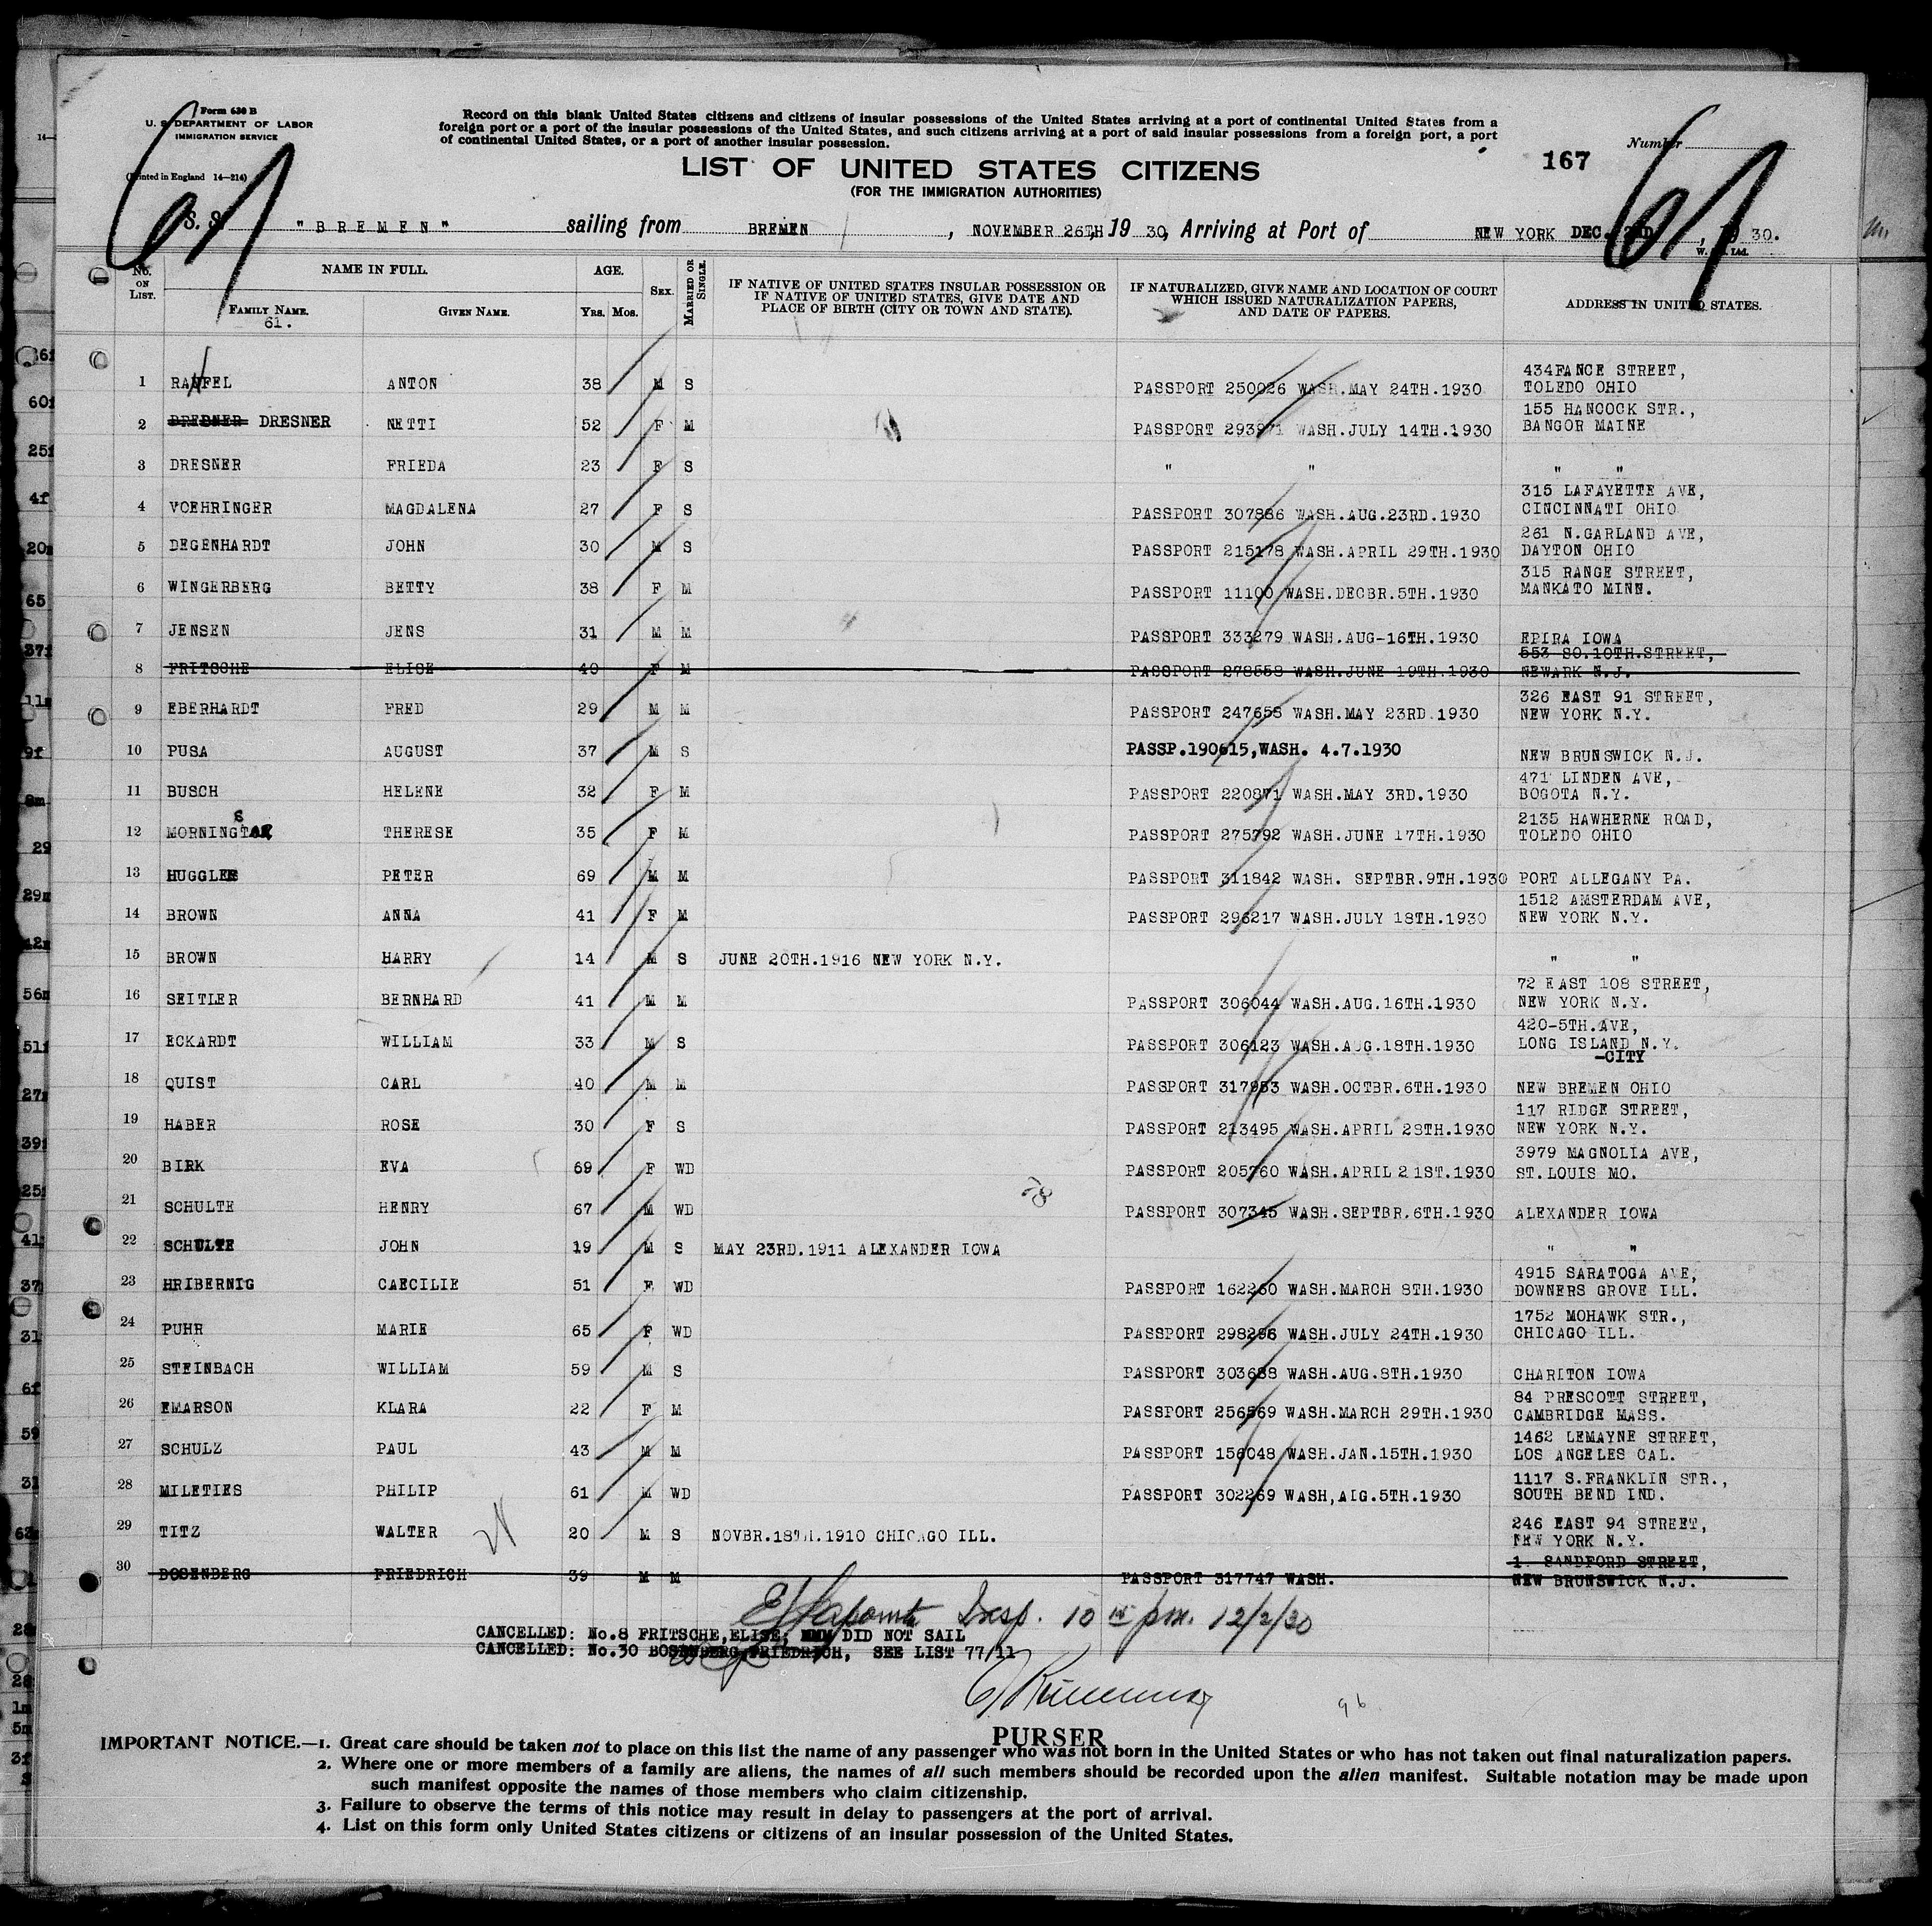 Form 630 B
U. S. DEPARTMENT OF LABOR
IMMIGRATION SERVICE
(Printed in England 14—214)
Record on this blank United States citizens and citizens of insular possessions of the United States arriving at a port of continental United States from a
foreign port or a port of the insular possessions of the United States, and such citizens arriving at a port of said insular possessions from a foreign port, a port
of continental United States, or a port of another insular possession.
LIST OF UNITED STATES CITIZENS
(FOR THE IMMIGRATION AUTHORITIES)
Number
167
61
61
S. S. "BREMEN" sailing from BREMEN, NOVEMBER 26TH, 19 30, Arriving at Port of NEW YORK DEC. 2ND, 19 30.
No. ON LIST. NAME IN FULL. AGE. SEX. MARRIED OR SINGLE. IF NATIVE OF UNITED STATES INSULAR POSSESSION OR IF NATIVE OF UNITED STATES, GIVE DATE AND PLACE OF BIRTH (CITY OR TOWN AND STATE). IF NATURALIZED, GIVE NAME AND LOCATION OF COURT WHICH ISSUED NATURALIZATION PAPERS, AND DATE OF PAPERS. ADDRESS IN UNITED STATES.
FAMILY NAME. GIVEN NAME. YRS. MOS.
61.
434 FANCE STREET,
1 ANTON 38 M S PASSPORT 250026 WASH.MAY 24TH.1930 TOLEDO OHIO
155 HANCOCK STR.,
2 DRESNER NETTI 52 F M PASSPORT WASH.JULY 14TH.1930 BANGOR MAINE
3 DRESNER FRIEDA 23 F S " " " "
315 LAFAYETTE AVE,
4 VOEHRINGER MAGDALENA 27 F S PASSPORT 307886 WASH.AUG.23RD.1930 CINCINNATI OHIO
261 N.GARLAND AVE,
5 DEGENHARDT JOHN 30 M S PASSPORT 215178 WASH.APRIL 29TH.1930 DAYTON OHIO
315 RANGE STREET,
6 WINGERBERG BETTY 38 F M PASSPORT 11100 WASH.DECBR.5TH.1930 MANKATO MINN.
7 JENSEN JENS 31 M M PASSPORT 333279 WASH.AUG-16TH.1930 EPIRA IOWA
553 SO.10TH.STREET,
8 FRITSCHE ELISE 40 F M PASSPORT 278558 WASH.JUNE 19TH.1930 NEWARK N.J.
326 EAST 91 STREET,
9 EBERHARDT FRED 29 M M PASSPORT 247655 WASH.MAY 23RD.1930 NEW YORK N.Y.
10 PUSA AUGUST 37 M S PASSP.190615,WASH. 4.7.1930 NEW BRUNSWICK N.J.
471 LINDEN AVE,
11 BUSCH HELENE 32 F M PASSPORT 220871 WASH.MAY 3RD.1930 BOGOTA N.Y.
2135 HAWHERNE ROAD,
12 MORNINGSTAR THERESE 35 F M PASSPORT 275792 WASH.JUNE 17TH.1930 TOLEDO OHIO
13 PETER 69 M M PASSPORT 311842 WASH. SEPTBR.9TH.1930 PORT ALLEGANY PA.
1512 AMSTERDAM AVE,
14 BROWN ANNA 41 F M PASSPORT 296217 WASH.JULY 18TH.1930 NEW YORK N.Y.
15 BROWN HARRY 14 M S JUNE 20TH.1916 NEW YORK N.Y. " "
72 EAST 108 STREET,
16 SEITLER BERNHARD 41 M M PASSPORT 306044 WASH.AUG.16TH.1930 NEW YORK N.Y.
420-5TH.AVE,
17 ECKARDT WILLIAM 33 M S PASSPORT 306123 WASH.AUG.18TH.1930 LONG ISLAND N.Y.
-CITY
18 QUIST CARL 40 M M PASSPORT 317953 WASH.OCTBR.6TH.1930 NEW BREMEN OHIO
117 RIDGE STREET,
19 HABER ROSE 30 F S PASSPORT 213495 WASH.APRIL 28TH.1930 NEW YORK N.Y.
3979 MAGNOLIA AVE,
20 BIRK EVA 69 F WD PASSPORT 205760 WASH.APRIL 21ST.1930 ST.LOUIS MO.
21 SCHULTE HENRY 67 M WD PASSPORT 307345 WASH.SEPTBR.6TH.1930 ALEXANDER IOWA
22 SCHULTE JOHN 19 M S MAY 23RD.1911 ALEXANDER IOWA " "
4915 SARATOGA AVE,
23 HRIBERNIG CAECILIE 51 F WD PASSPORT 162260 WASH.MARCH 8TH.1930 DOWNERS GROVE ILL.
1752 MOHAWK STR.,
24 PUHR MARIE 65 F WD PASSPORT 298296 WASH.JULY 24TH.1930 CHICAGO ILL.
25 STEINBACH WILLIAM 59 M S PASSPORT 303688 WASH.AUG.8TH.1930 CHARITON IOWA
84 PRESCOTT STREET,
26 EMARSON KLARA 22 F M PASSPORT 256569 WASH.MARCH 29TH.1930 CAMBRIDGE MASS.
1462 LEMAYNE STREET,
27 SCHULZ PAUL 43 M M PASSPORT 156048 WASH.JAN.15TH.1930 LOS ANGELES CAL.
1117 S.FRANKLIN STR.,
28 MILETIES PHILIP 61 M WD PASSPORT 302269 WASH,AIG.5TH.1930 SOUTH BEND IND.
246 EAST 94 STREET,
29 TITZ WALTER 20 M S NOVBR.18TH.1910 CHICAGO ILL. NEW YORK N.Y.
1. SANDFORD STREET,
30 FRIEDRICH 39 M M PASSPORT 317747 WASH. NEW BRUNSWICK N.J.
Insp. 10 15 pm. 12/2/30
CANCELLED: No.8 FRITSCHE,ELISE; DID NOT SAIL
CANCELLED: No.30 BOSENBERG,FRIEDRICH, SEE LIST 77/11
96
PURSER
IMPORTANT NOTICE.—1. Great care should be taken not to place on this list the name of any passenger who was not born in the United States or who has not taken out final naturalization papers.
2. Where one or more members of a family are aliens, the names of all such members should be recorded upon the alien manifest. Suitable notation may be made upon
such manifest opposite the names of those members who claim citizenship.
3. Failure to observe the terms of this notice may result in delay to passengers at the port of arrival.
4. List on this form only United States citizens or citizens of an insular possession of the United States.